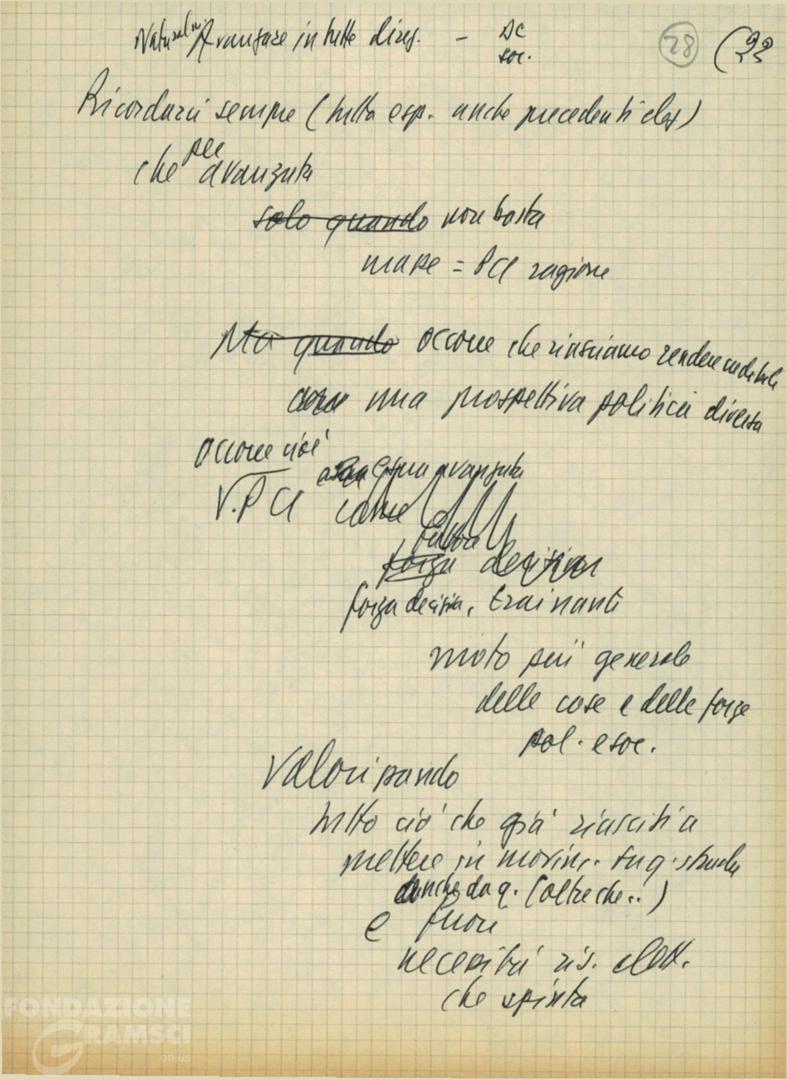 Natural. Avanzare in tutte direz. - DC
soc.
28 (22
Ricordarci sempre (tutta esp. anche precedenti elez)
che per avanzata
solo quando non basta
masse = PCI ragione
Ma quando occorre che riusciamo rendere credibile
una prospettiva politica diversa
occorre cioè
V. PCI come
e sua avanzata
forza decisiva
forza decisiva, trainante
moto più generale
delle cose e delle forze
pol. e soc.
Valorizzando
tutto ciò che già riusciti a
mettere in movim. su q. strada
anche da q. (oltre che..)
e fuori
necessità ris. elett.
che spinta
FONDAZIONE
GRAMSCI
onlus